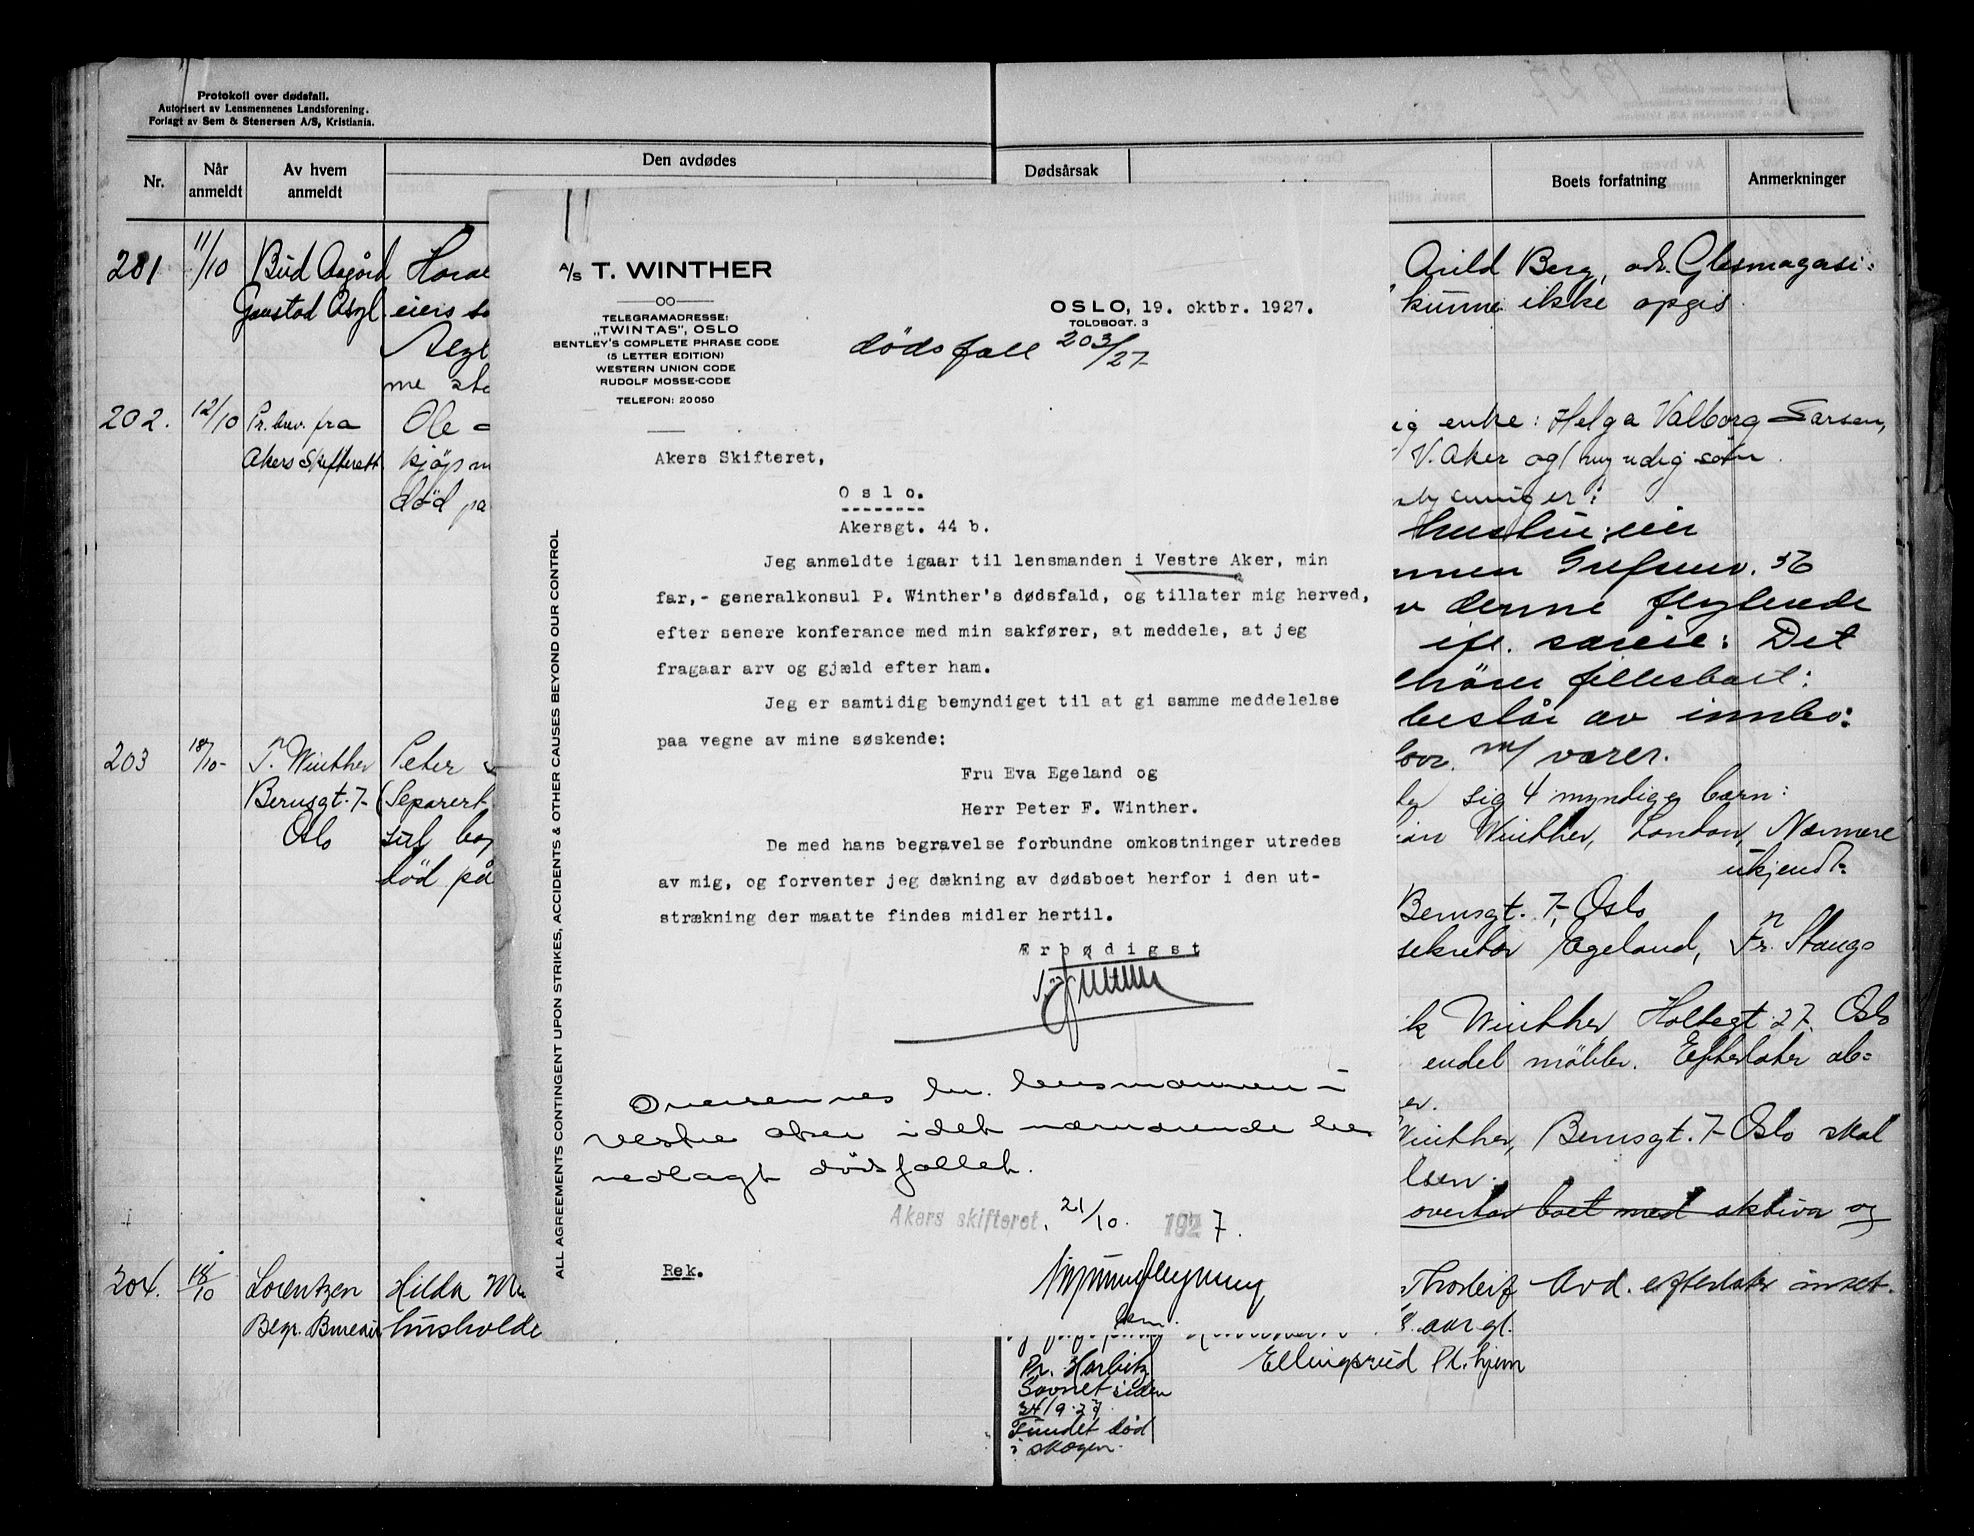 Protokoll over dødsfall.
Autorisert av Lensmennenes Landsforening.
Forlagt av Sem & Stenersen A/S, Kristiania.
Nr.
Når anmeldt
Av hvem anmeldt
Den avdødes
Dødsårsak
Boets forfatning
Anmerkninger
201
11/10
Bud Asgård
Gaustad Asyl
eiers
Asyl
me
202.
12/10
Pr. brev. fra
Akers Skifterett
Ole
kjøpm
død på
203
18/10-
T. Winther
Bernsgt. 7-
Oslo
Peter
(Separert
død på
204.
18/10
Lorentzen
Begr. Bureau
Hilda
husholde
A/S T. WINTHER
TELEGRAMADRESSE:
"TWINTAS", OSLO
BENTLEY'S COMPLETE PHRASE CODE
(5 LETTER EDITION)
WESTERN UNION CODE
RUDOLF MOSSE-CODE
TELEFON: 20050
OSLO, 19. oktbr. 1927.
TOLDBOGT. 3
dødsfall 203/27
ALL AGREEMENTS CONTINGENT UPON STRIKES, ACCIDENTS & OTHER CAUSES BEYOND OUR CONTROL
Akers Skifteret,
Oslo.
Akersgt. 44 b.
Jeg anmeldte igaar til lensmanden i Vestre Aker, min
far,- generalkonsul P. Winther's dødsfald, og tillater mig herved,
efter senere konferance med min sakfører, at meddele, at jeg
fragaar arv og gjæld efter ham.
Jeg er samtidig bemyndiget til at gi samme meddelelse
paa vegne av mine søskende:
Fru Eva Egeland og
Herr Peter F. Winther.
De med hans begravelse forbundne omkostninger utredes
av mig, og forventer jeg dækning av dødsboet herfor i den ut-
strækning der maatte findes midler hertil.
Ærbødigst
Oversennes hr. lensmannen i
Vestre Aker idet nærværende
vedlagt dødsfallet.
Akers skifteret, 21/10. 1927.
Rek.
Arild Berg, adr. Glasmagasi-
kunne ikke opgis
ig enke: Helga Valborg Larsen,
V. Aker og myndig søn.
hustru eier
Grefsenv. 56
denne flytende
særeie: Det
fellesboet:
består av innbo:
m/ varer.
sig 4 myndige barn:
Winther, London, Nærmere
ukjendt.
Bernsgt. 7, Oslo
sekretær Egeland, Fr. Stangs
Winther, Holtegt. 27. Oslo
endel møbler. Efterlater
er.
Winther, Bernsgt. 7- Oslo skal
overtar boet med aktiva og
Thorleif Avd. efterlater
aar gl.
Ellingsrud Pl. hjem
Pr. Harbitz
Savnet siden
24/9-27.
Fundet død
i skogen.